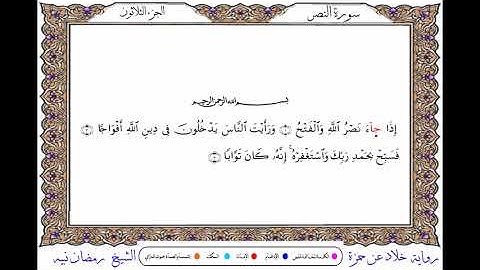 سورة النصر
الجزء الثلاثون
بسم الله الرحمن الرحيم
إِذَا جَآءَ نَصْرُ اللَّهِ وَالْفَتْحُ ١ وَرَأَيْتَ النَّاسَ يَدْخُلُونَ فِي دِينِ اللَّهِ أَفْوَاجًا ٢
فَسَبِّحْ بِحَمْدِ رَبِّكَ وَاسْتَغْفِرْهُ ۚ إِنَّهُ كَانَ تَوَّابًا ٣
رواية خلاد عن حمزة
الإدغام
الإمالة
السكت
الشيخ رمضان نيه